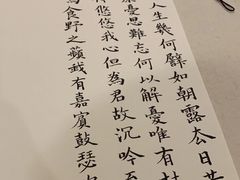 人生幾何譬如朝露去日苦
憂思難忘何以解憂唯有
悠悠我心但為君故沉吟至
食野之蘋我有嘉賓鼓瑟